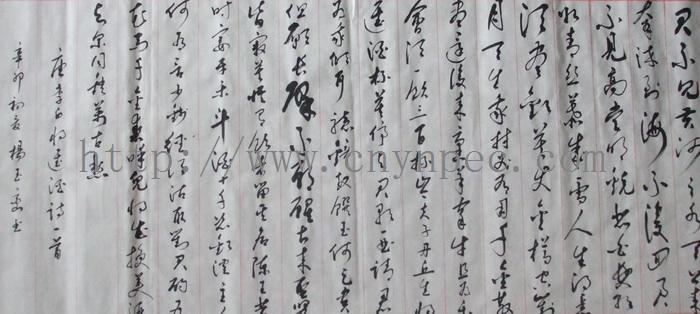 君不見黃河之水天上來
奔流到海不復回君
不見高堂明鏡悲白髮朝
如青絲暮成雪人生得意
須盡歡莫使金樽空對
月天生我材必有用千金散
盡還復來烹羊宰牛且為樂
會須一飲三百杯岑夫子丹丘生將
進酒杯莫停與君歌一曲請君
為我傾耳聽鐘鼓饌玉何足貴
但願長醉不願醒古來聖賢
皆寂寞惟有飲者留其名陳王昔
時宴平樂斗酒十千恣歡謔主人
何為言少錢徑須沽取對君酌五
花馬千金裘呼兒將出換美酒
與爾同銷萬古愁
唐李白將進酒詩一首
辛卯初夏楊玉書
http://www.cnynpec.com